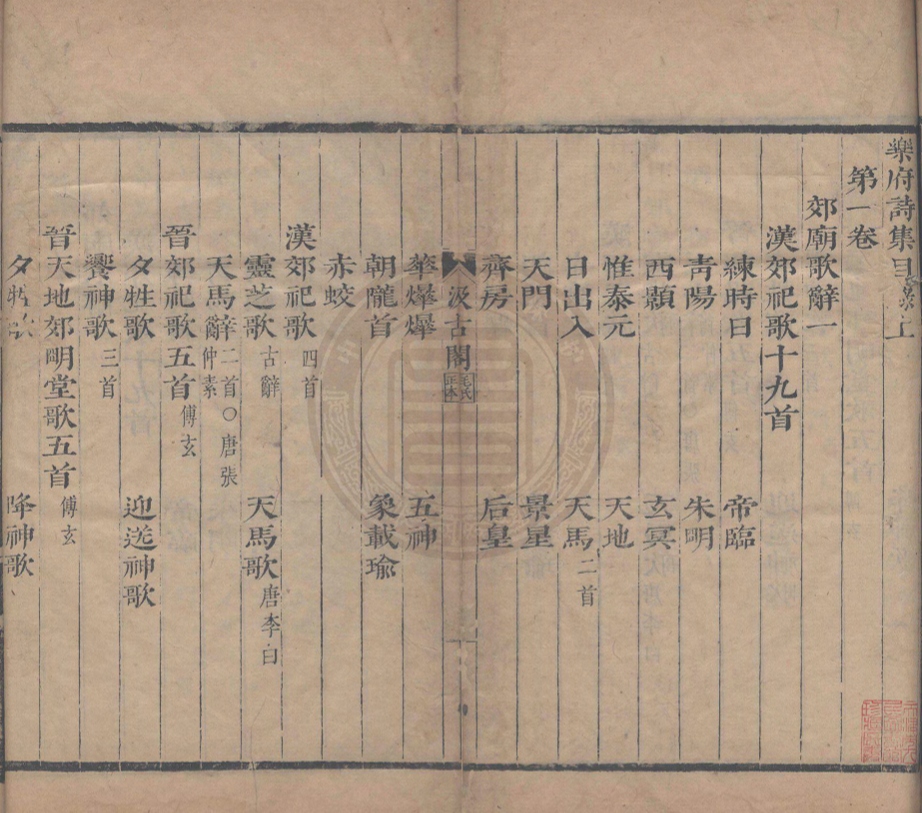 樂府詩集目錄上
第一卷
郊廟歌辭一
漢郊祀歌十九首
練時日 帝臨
靑陽 朱明
西顥 玄冥
惟泰元 天地
日出入 天馬二首
天門 景星
齊房 后皇
汲古閣 毛氏正本
華爗爗 五神
朝隴首 象載瑜
赤蛟
漢郊祀歌四首
靈芝歌古辭 天馬歌唐李白
天馬辭二首○唐張仲素
晉郊祀歌五首傅玄
夕牲歌 迎送神歌
饗神歌三首
晉天地郊明堂歌五首傅玄
夕牲歌 降神歌